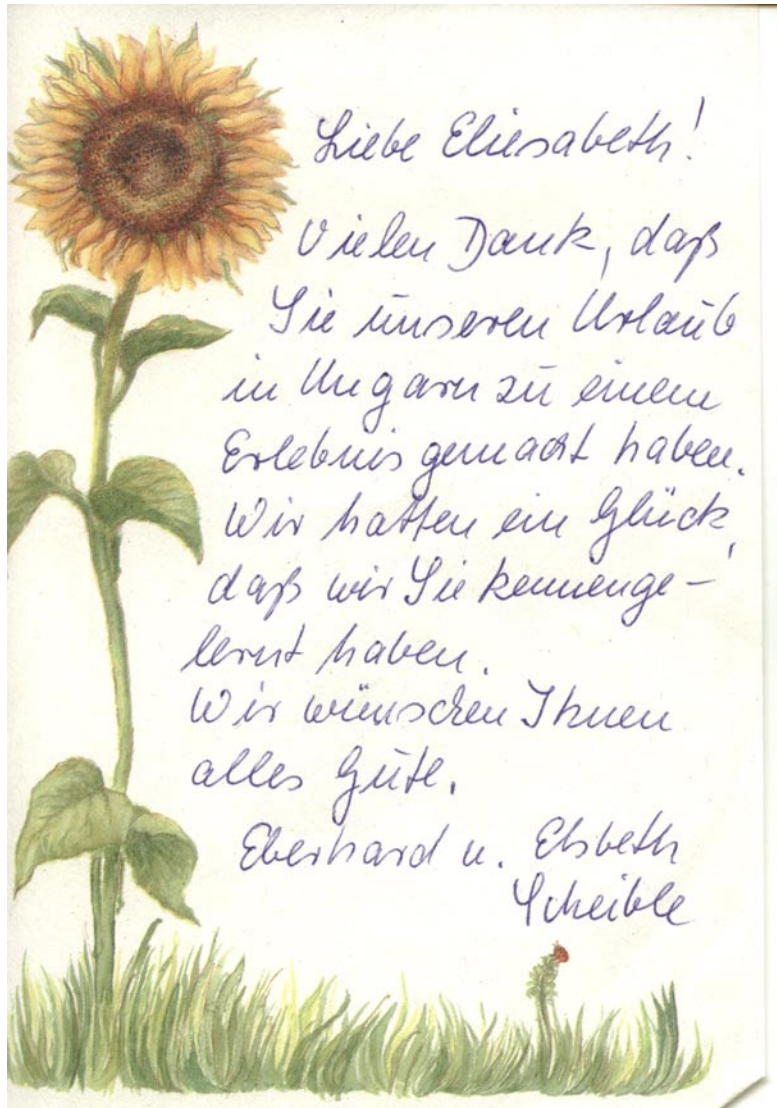 Liebe Eliesabeth!
Vielen Dank, daß
Sie unseren Urlaub
in Ungarn zu einem
Erlebnis gemacht haben.
Wir hatten ein Glück,
daß wir Sie kennenge-
lernt haben.
Wir wünschen Ihnen
alles Gute.
Eberhard u. Elsbeth
Scheible